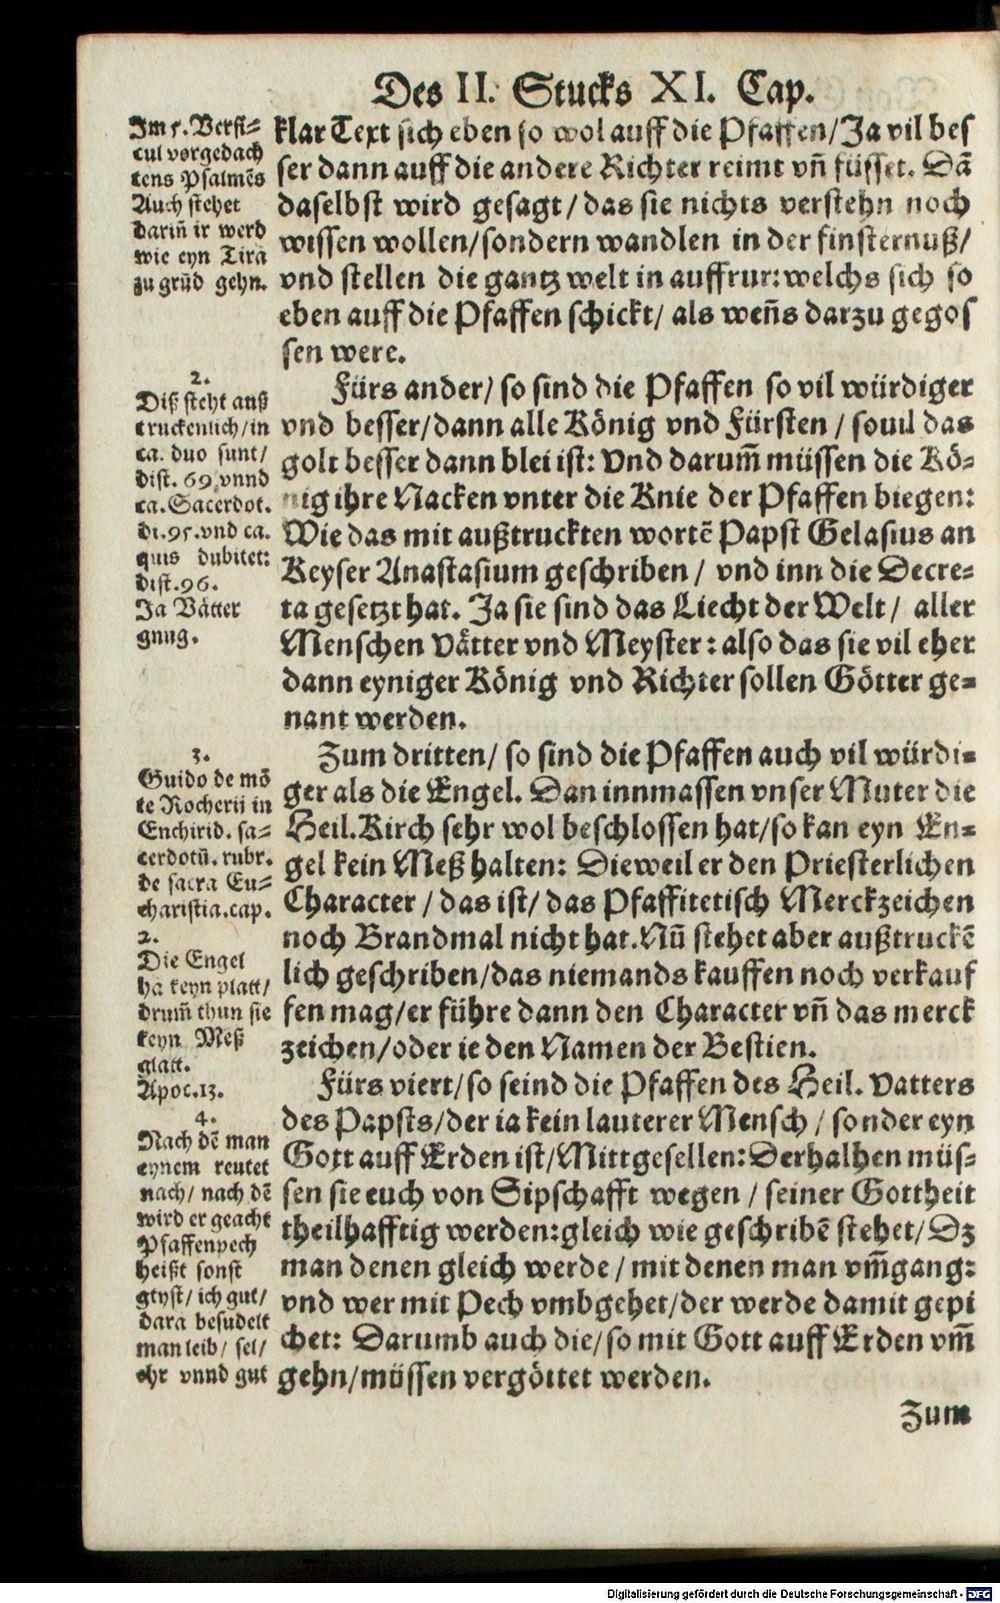 Des II. Stucks XI. Cap.
Im 5. Versi=
cul vorgedach
tens Psalmẽs
Auch stehet
dariñ ir werd
wie eyn Tirã
zu grũd gehn.
klar Text sich eben so wol auff die Pfaffen/Ja vil bes
ser dann auff die andere Richter reimt vñ füsset. Dã
daselbst wird gesagt/das sie nichts verstehn noch
wissen wollen/sondern wandlen in der finsternuß/
vnd stellen die gantz welt in auffrur: welchs sich so
eben auff die Pfaffen schickt/als weñs darzu gegos
sen were.
2.
Diß steht auß
truckenlich/in
ca. duo sunt/
dist. 69. vnnd
ca. Sacerdot.
di.95. vnd ca.
quis dubitet:
dist.96.
Ja Vätter
gnug.
Fürs ander/so sind die Pfaffen so vil würdiger
vnd besser/dann alle König vnd Fürsten/souil das
golt besser dann blei ist: Vnd darum̃ müssen die Kö=
nig ihre Nacken vnter die Knie der Pfaffen biegen:
Wie das mit außtruckten wortẽ Papst Gelasius an
Keyser Anastasium geschriben/vnd inn die Decre=
ta gesetzt hat. Ja sie sind das Liecht der Welt/aller
Menschen Vätter vnd Meyster: also das sie vil eher
dann eyniger König vnd Richter sollen Götter ge=
nant werden.
3.
Guido de mõ
te Rocherii in
Enchirid. sa=
cerdotũ. rubr.
de sacra Eu=
charistia.cap.
2.
Die Engel
hã keyn platt/
drum̃ thun sie
keyn Meß
glatt.
Apoc.13.
Zum dritten/so sind die Pfaffen auch vil würdi=
ger als die Engel. Dan innmassen vnser Muter die
Heil. Kirch sehr wol beschlossen hat/so kan eyn En=
gel kein Meß halten: Dieweil er den Priesterlichen
Character/das ist/das Pfaffitetisch Merckzeichen
noch Brandmal nicht hat. Nũ stehet aber außtruckẽ
lich geschriben/das niemands kauffen noch verkauf
fen mag/er führe dann den Character vñ das merck
zeichen/oder ie den Namen der Bestien.
4.
Nach dẽ man
eynem reutet
nach/nach dẽ
wird er geacht
Pfaffenpech
heißt sonst
gtyst/ich gut/
dara besudelt
man leib/sel/
ehr vnnd gut
Fürs viert/so seind die Pfaffen des Heil. Vatters
des Papsts/der ia kein lauterer Mensch/sonder eyn
Gott auff Erden ist/Mittgesellen: Derhalhen müs=
sen sie euch von Sipschafft wegen/seiner Gottheit
theilhafftig werden: gleich wie geschribẽ stehet/Dz
man denen gleich werde/mit denen man vm̃gang:
vnd wer mit Pech vmbgehet/der werde damit gepi
chet: Darumb auch die/so mit Gott auff Erden vm̃
gehn/müssen vergöttet werden.
Zum
Digitalisierung gefördert durch die Deutsche Forschungsgemeinschaft - DFG